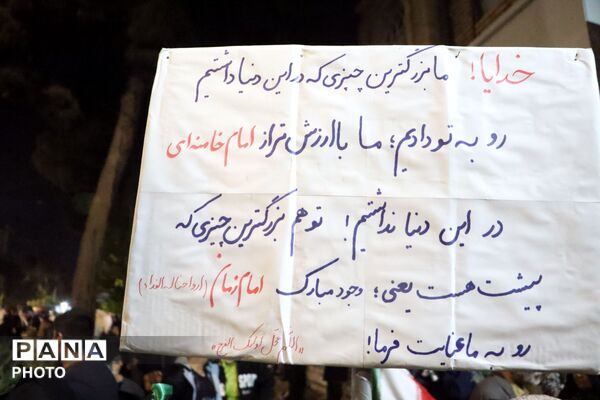 خدایا! ما بزرگترین چیزی که در این دنیا داشتیم
رو به تو دادیم؛ ما با ارزش تر از امام خامنه ای
در این دنیا نداشتیم! تو هم بزرگترین چیزی که
پیشت هست یعنی؛ وجود مبارک امام زمان (ارواحنا له الفداء)
رو به ما عنایت فرما! «اللهم عجل لولیک الفرج»
PANA
PHOTO